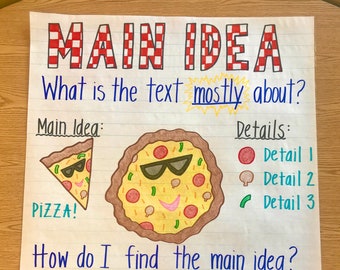 MAIN IDEA
What is the text mostly about?
Main Idea:
PIZZA!
Details:
Detail 1
Detail 2
Detail 3
How do I find the main idea?